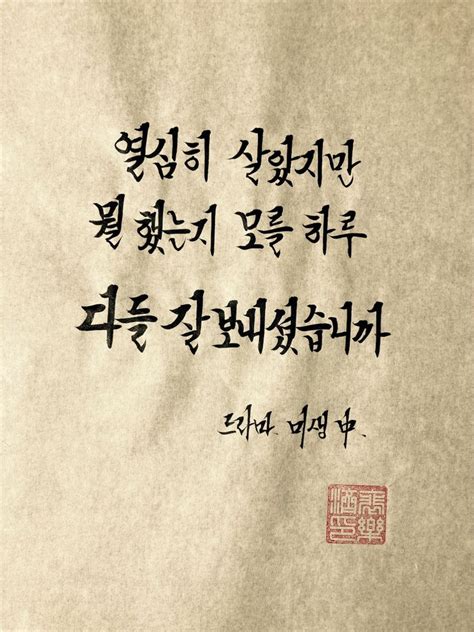 열심히 살았지만
뭘 했는지 모를 하루
다들 잘 보내셨습니까
드라마. 미생 中.